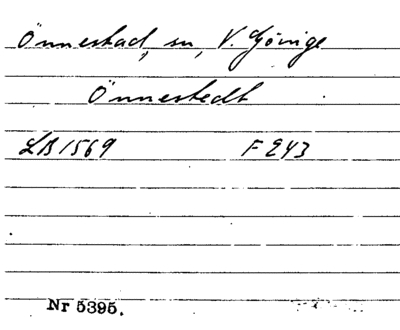 Önnestad, sn, V. Göinge
Önnestedt
LB 1569 F 243
Nr 5395.